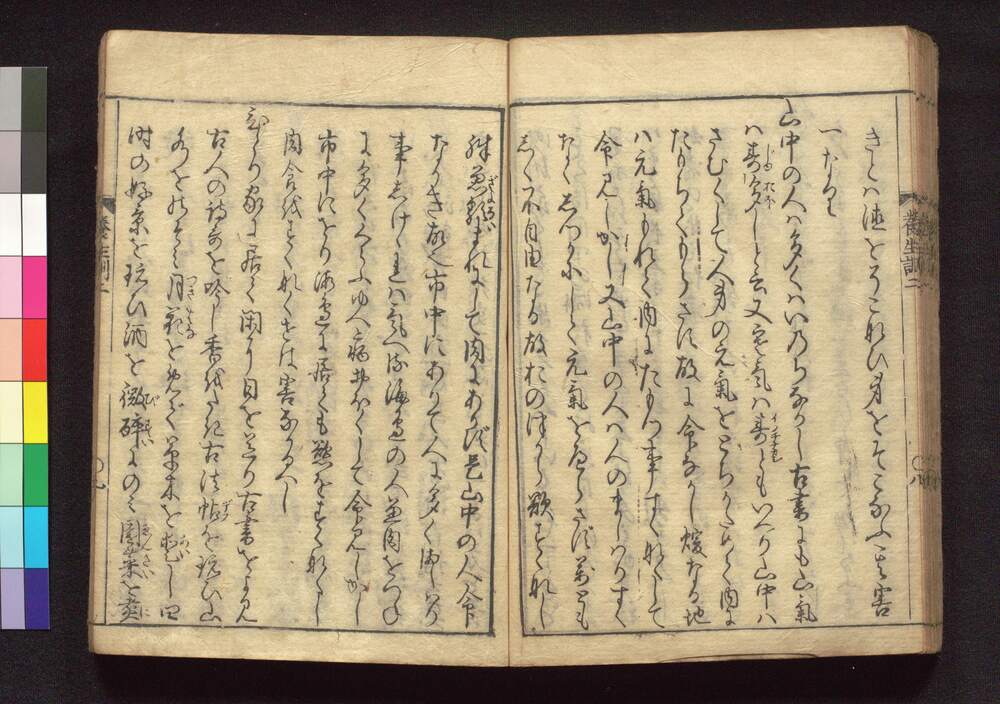 きとハ徳をそこなひ身をそこなふ其害
一なり
山中の人ハ多くハいのちながし古書にも山氣
ハ壽多しと云又寒氣ハ壽ともいへり山中ハ
さむくして人身の元氣をとぢかためて内に
たもちてもらさず故に命ながし煖なる地
ハ元氣もれて内にたもつ事すくなくして
命みじかし又山中の人ハ人のまじハりすく
なくしづかにして元氣をへらさず萬とも
しく不自由なる故おのづから慾すくなし
殊魚類まれにして肉にあかず是山中の人命
ながき故也市中にありて人に多くまじハり
事しげけれハ氣へる海邊の人魚肉をつね
に多くくらふゆへ病おほくして命みじかし
市中にをり海邊に居ても慾をすくなくし
肉食をすくなくせは害なかるべし
ひとり家に居て閑に日を送り古書をよみ
古人の詩哥を吟じ香をたき古法帖を玩ひ山
水をのぞミ月花をめで草木を愛し四
時の好景を玩ひ酒を微酔にのミ園菜を煮
養生訓二
八
養生訓二